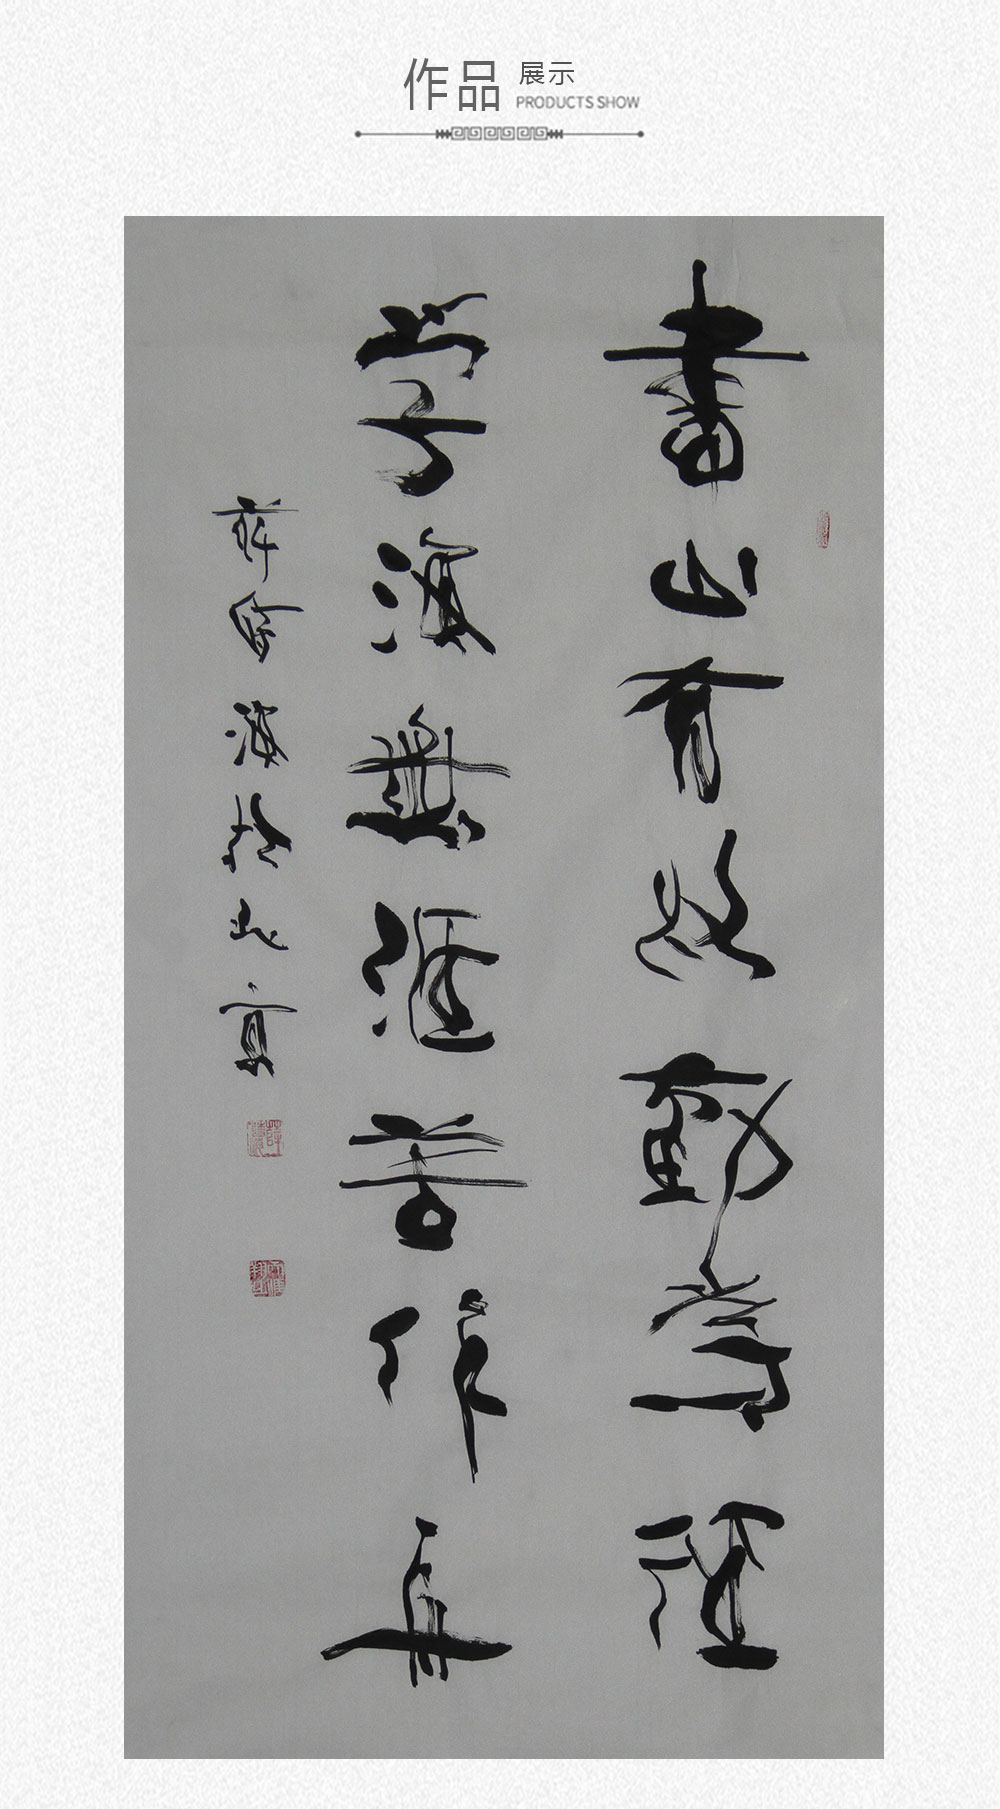 作品 展示
PRODUCTS SHOW
書山有路勤爲徑
学海無涯苦作舟
薛會海於北京